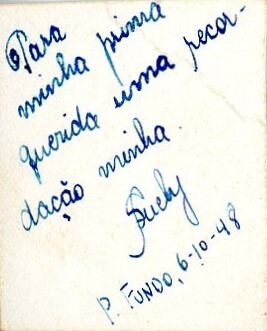 Para
minha prima
querida uma recor-
dação minha.
Suely
P. FUNDO, 6-10-48